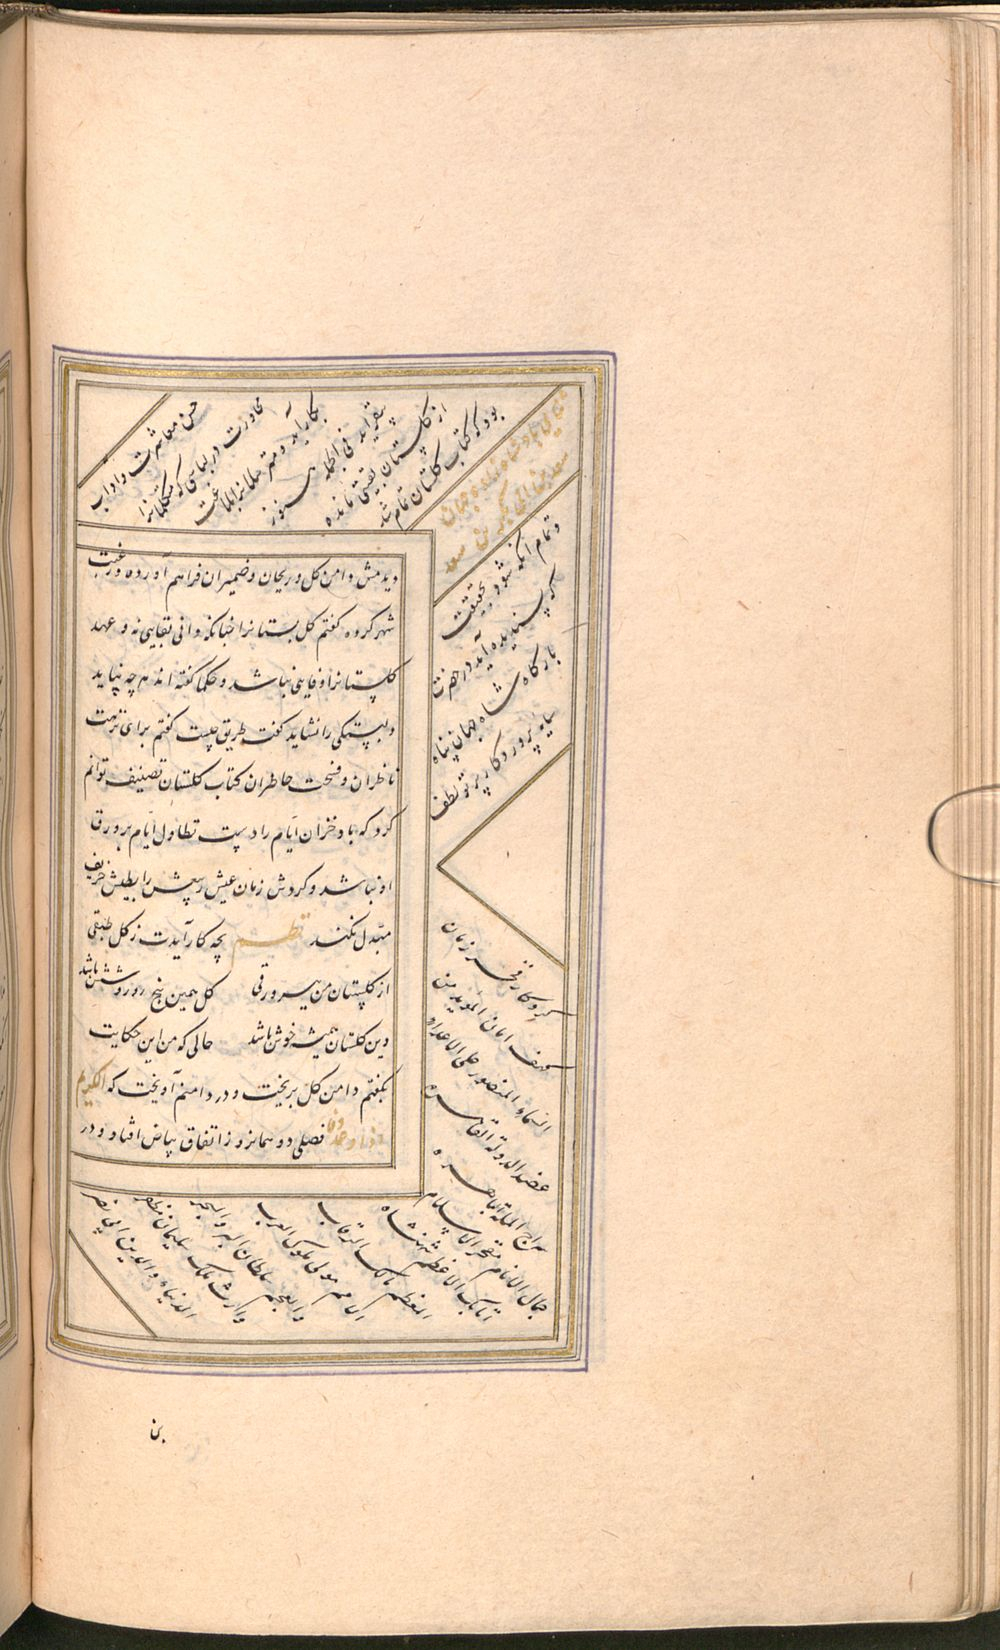 دیدمش دامن گل و ریحان و ضمیران فراهم آورده و رغبت
شهر کروه کفتم کل بستانرا چنانکه دانی بقایی نه و عهد
کلستانرا وفایی نباشد و حکما کفته اند هر چه نپاید
دلبستکی را نشاید کفت طریق چیست کفتم برای نزهت
ناظران و فسحت حاظران کتاب کلستان تصنیف توانم
کرد که باد خزان ایام را دست تطاول ایام بر ورق
او نباشد و کردش زمان عیش ربیعش را بطیش خریف
مبدل نکند نظم بچه کار آیدت ز کل طبقی
از کلستان من ببر ورقی کل همین پنج روز و شش باشد
وین کلستان همیشه خوش باشد حالی که من این حکایت
بکفتم دامن کل بریخت و در دامنم آویخت که الکریم
اذا وعد وفا فصلی دو همانروز اتفاق بیاض افتاد و در
حسن معاشرت و آداب
محاورت در لباسی که متکلمانرا
بکار آید و مترسلانرا بلاغت
بیفزاید فی الجمله هنوز
از کلستان بقیتی مانده
بود که کتاب کلستان تمام شد
سعد بن ابی بکر بن سعد
و تمام آنکه شود بحقیقت
که پسندیده آید در حضرت
بارکاه شاه جهان پناه
سایه پروردکار پرتو لطف
کردکار ذخر زمان
کهف امان المؤید من
السماء المنصور علی الاعداء
عضد الدولة القاهره
سراج الملة الباهره
جمال الانام مفخر الاسلام
اتابک الاعظم شهنشاه
المعظم مالک الرقاب
الامم مولی ملوک العرب
والعجم سلطان البر والبحر
وارث ملک سلیمان مظفر
الدنیا والدین ابی نصر
بن